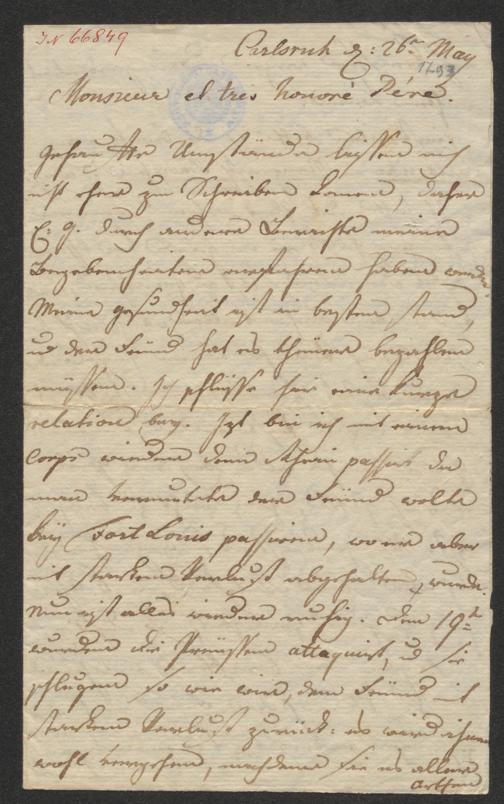 IN 66849
Carlsruh d: 26ten May
1793
Monsieur et tres honoré Pére.
gehäufte Umstände liessen mich
nicht eher zum Schreiben komen, daher
E: g. durch andere Berichte meine
Begebenheiten erfahren haben werden.
Meine gesundheit ist in besten stand,
und der Feind hat es theuer bezahlen
müssen. Ich schliesse hier eine kurze
relation bey. Izt bin ich mit einem
Corps wieder den Rhein passirt da
man vermuthete der Feind wolte
bey Fort Louis passieren, wo er aber
mit starken Verlust abgehalten wurde.
Nun ist alles wieder ruhig. den 19ten
wurden die Preussen attaquirt, und sie
schlugen so wie wir, den Feind mit
starken Verlust zurück: es wird ihnen
wohl vergehen, nachdem sie es aller
orthen